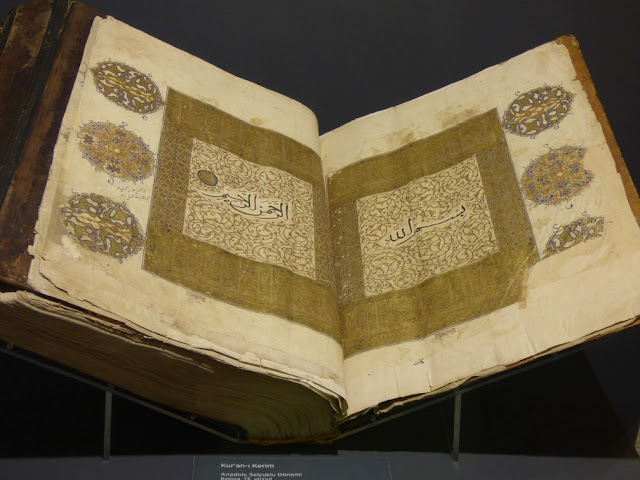 بسم الله
الرحمن الرحيم
Kur'an-ı Kerim
Anadolu Selçuklu Dönemi
Konya, 13. yüzyıl